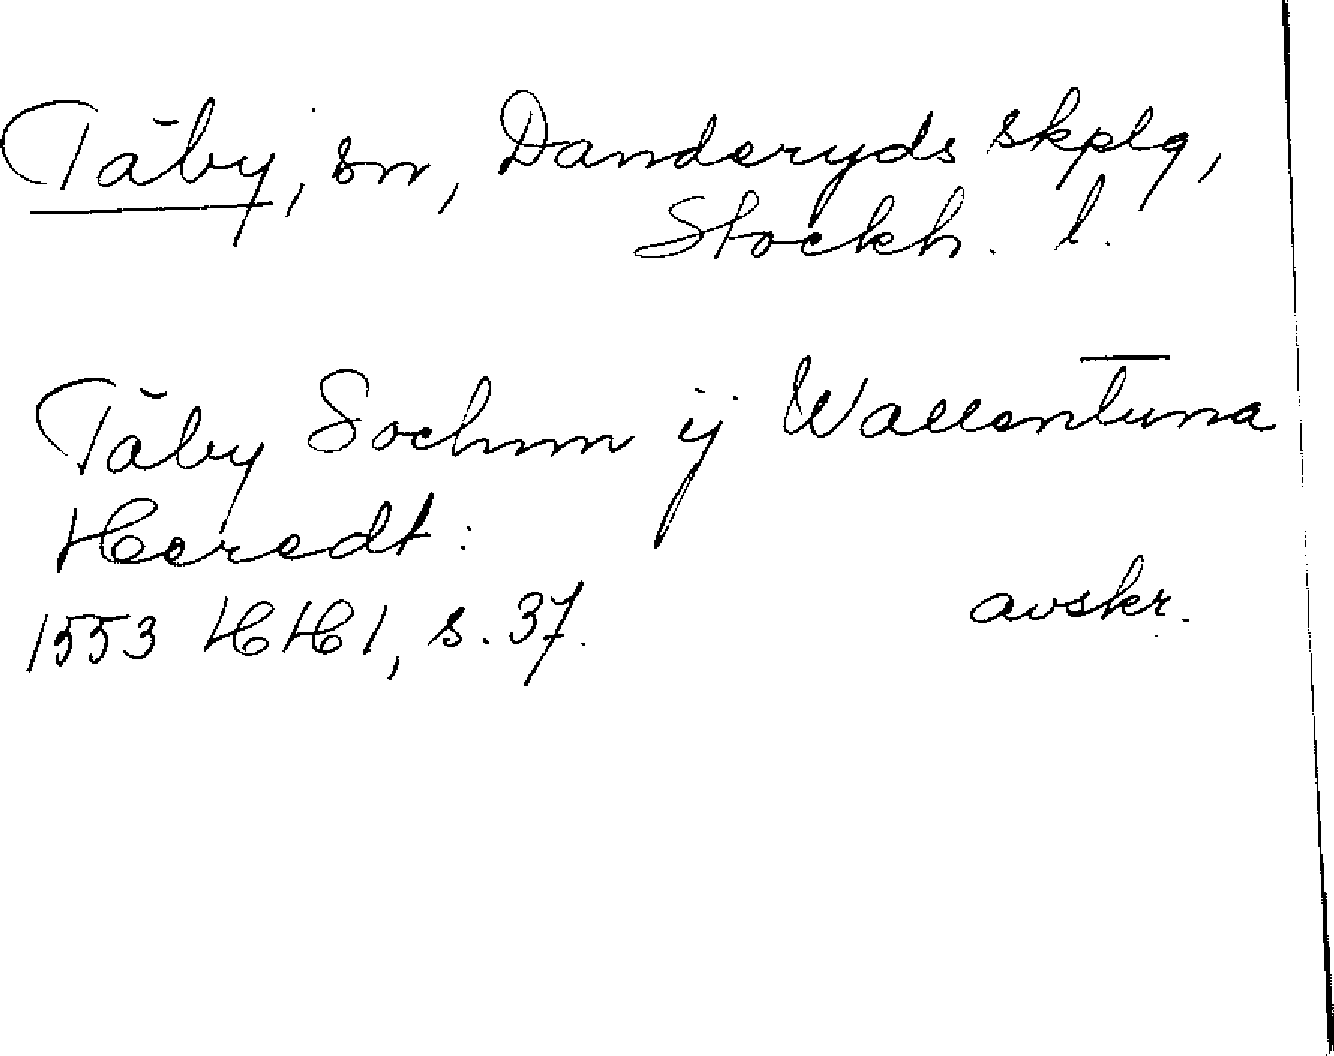 Täby, sn, Danderyds skplg,
Stockh. l.
Täby Sochnn ij Wallentuna
Heredt:
1553 HH1, s. 37.
avskr.